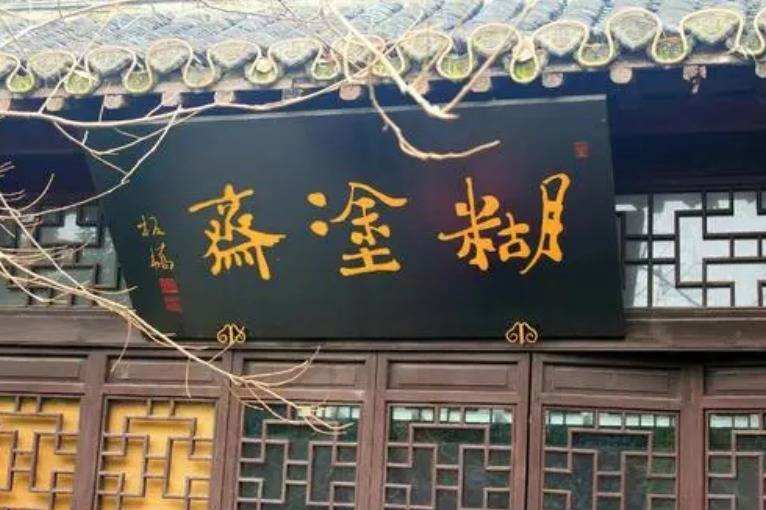 糊塗齋
板橋